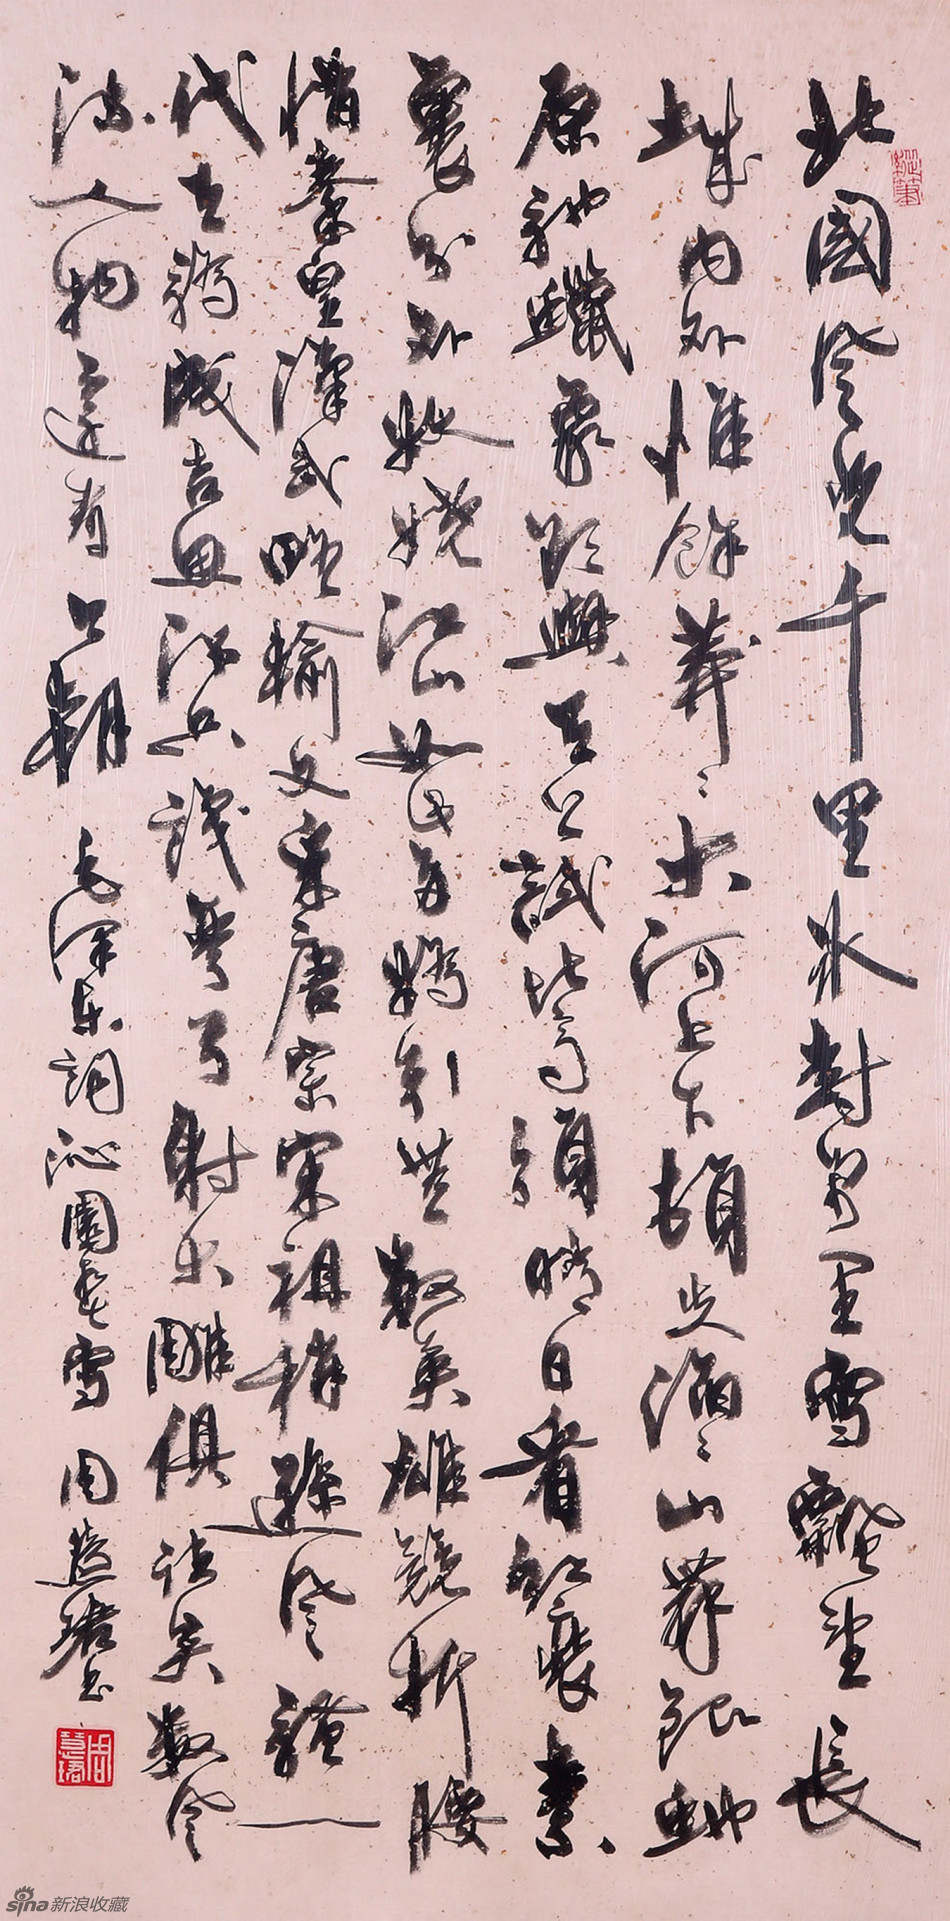 北國風光千里冰封萬里雪飄望長
城內外惟餘莽〻大河上下頓失滔〻山舞銀蛇
原馳蠟象欲與天公試比高須晴日看紅裝素
裹分外妖嬈江山如此多嬌引無數英雄競折腰
惜秦皇漢武略輸文采唐宗宋祖稍遜風騷一
代天驕成吉思汗只識彎弓射大雕俱往矣數風
流人物還看今朝 毛澤東詞沁園春雪 周慧珺書
周慧珺
sina新浪收藏